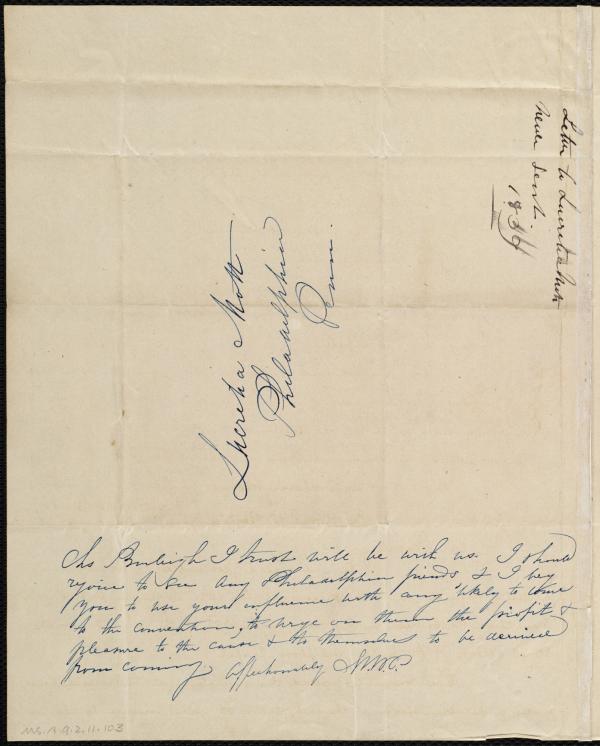 Letter to Lucretia Mott
never sent.
Lucretia Mott
Philadelphia
Penn.
Chs Burleigh I trust will be with us. I should
rejoice to see any Philadelphia friends & I beg
you to use your influence with any likely to come
to the convention, to urge on them the profit &
pleasure to the cause & to themselves to be derived
from coming. Affectionately M.W.C.
Ms.A.9.2.11.103